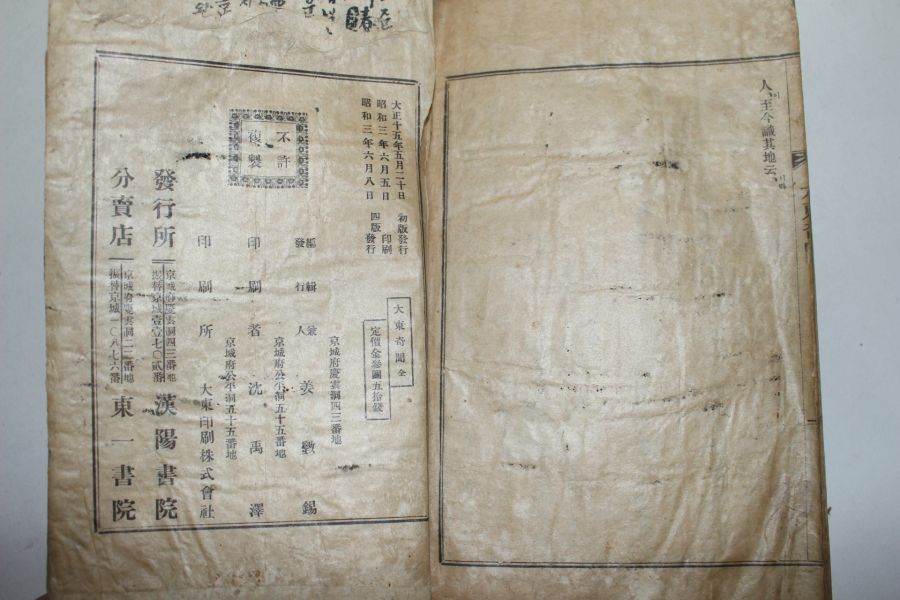 人至今識其地云
大正十五年五月二十日 初版發行
昭和三年六月五日 印刷
昭和三年六月八日 四版發行
不許複製
大東奇聞 全
定價金參圓五拾錢
京城府慶雲洞四三番地
編輯兼發行人 姜斅錫
京城府公平洞五十五番地
印刷者 沈禹澤
京城府公平洞五十五番地
印刷所 大東印刷株式會社
發行所 京城府慶雲洞四三番地 振替京城壹壹七〇貳番 漢陽書院
分賣店 京城府慶雲洞二二番地 振替京城一〇八七六番 東一書院